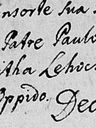 onsorte Sua
Patre Paulo
itha Lehoc
Oppido. Dec